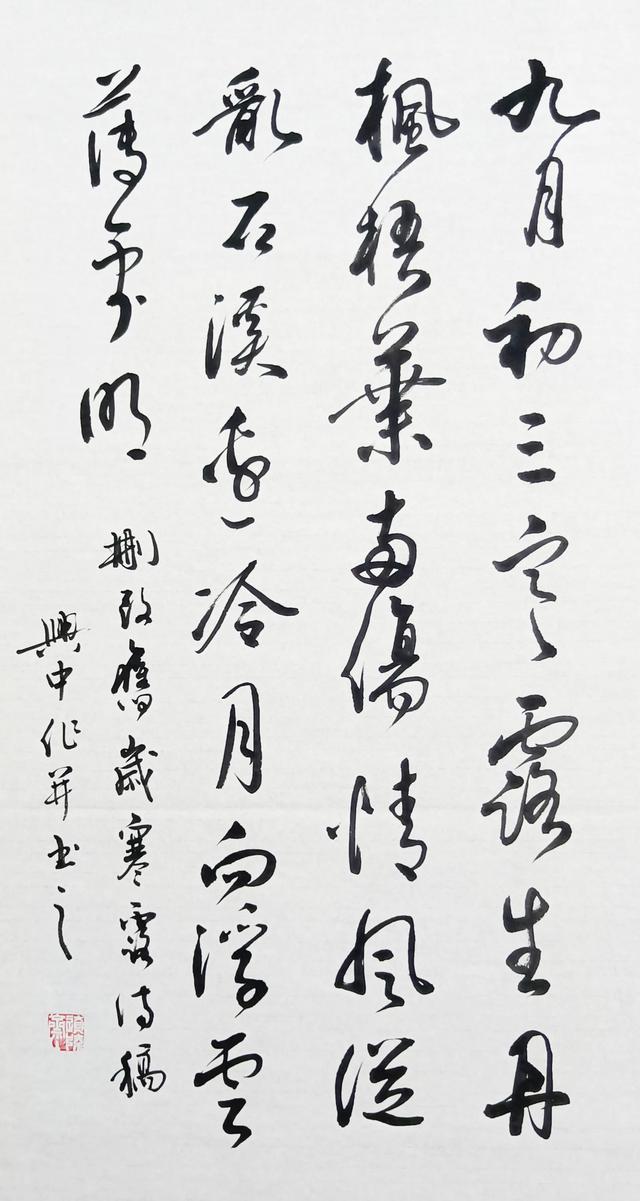 九月初三寒露生丹
楓梧葉兩傷情風從
亂石溪邊冷月向浮雲
薄處明
刪改舊歲寒露詩稿
興中作并書之